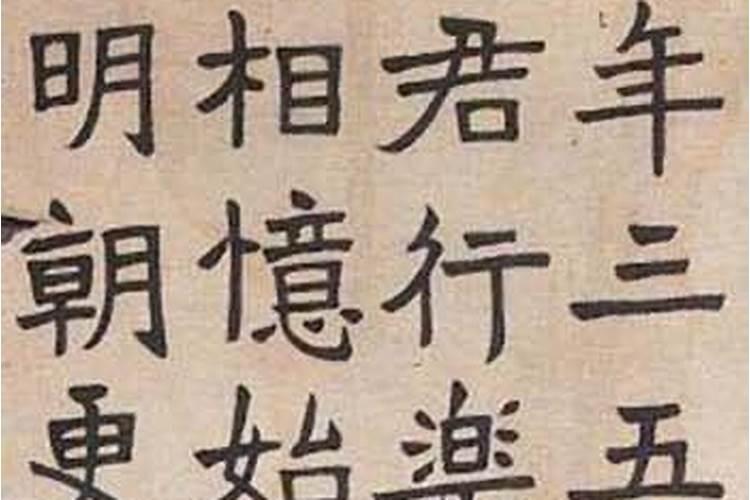 年三五
君行樂
相憶始
明朝更